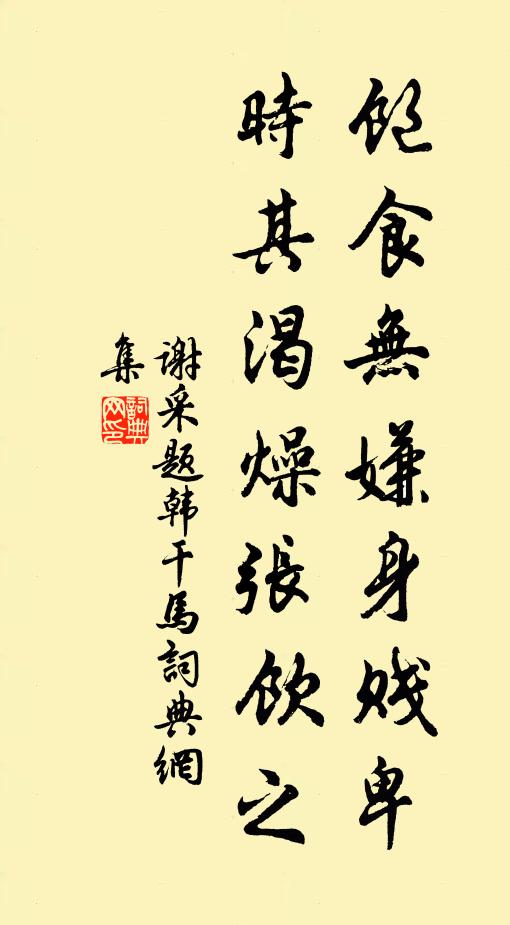 飽食無嫌身贱卑
時其渴燥張飲之
谢采题韩干馬詞典網
集
詞典網印